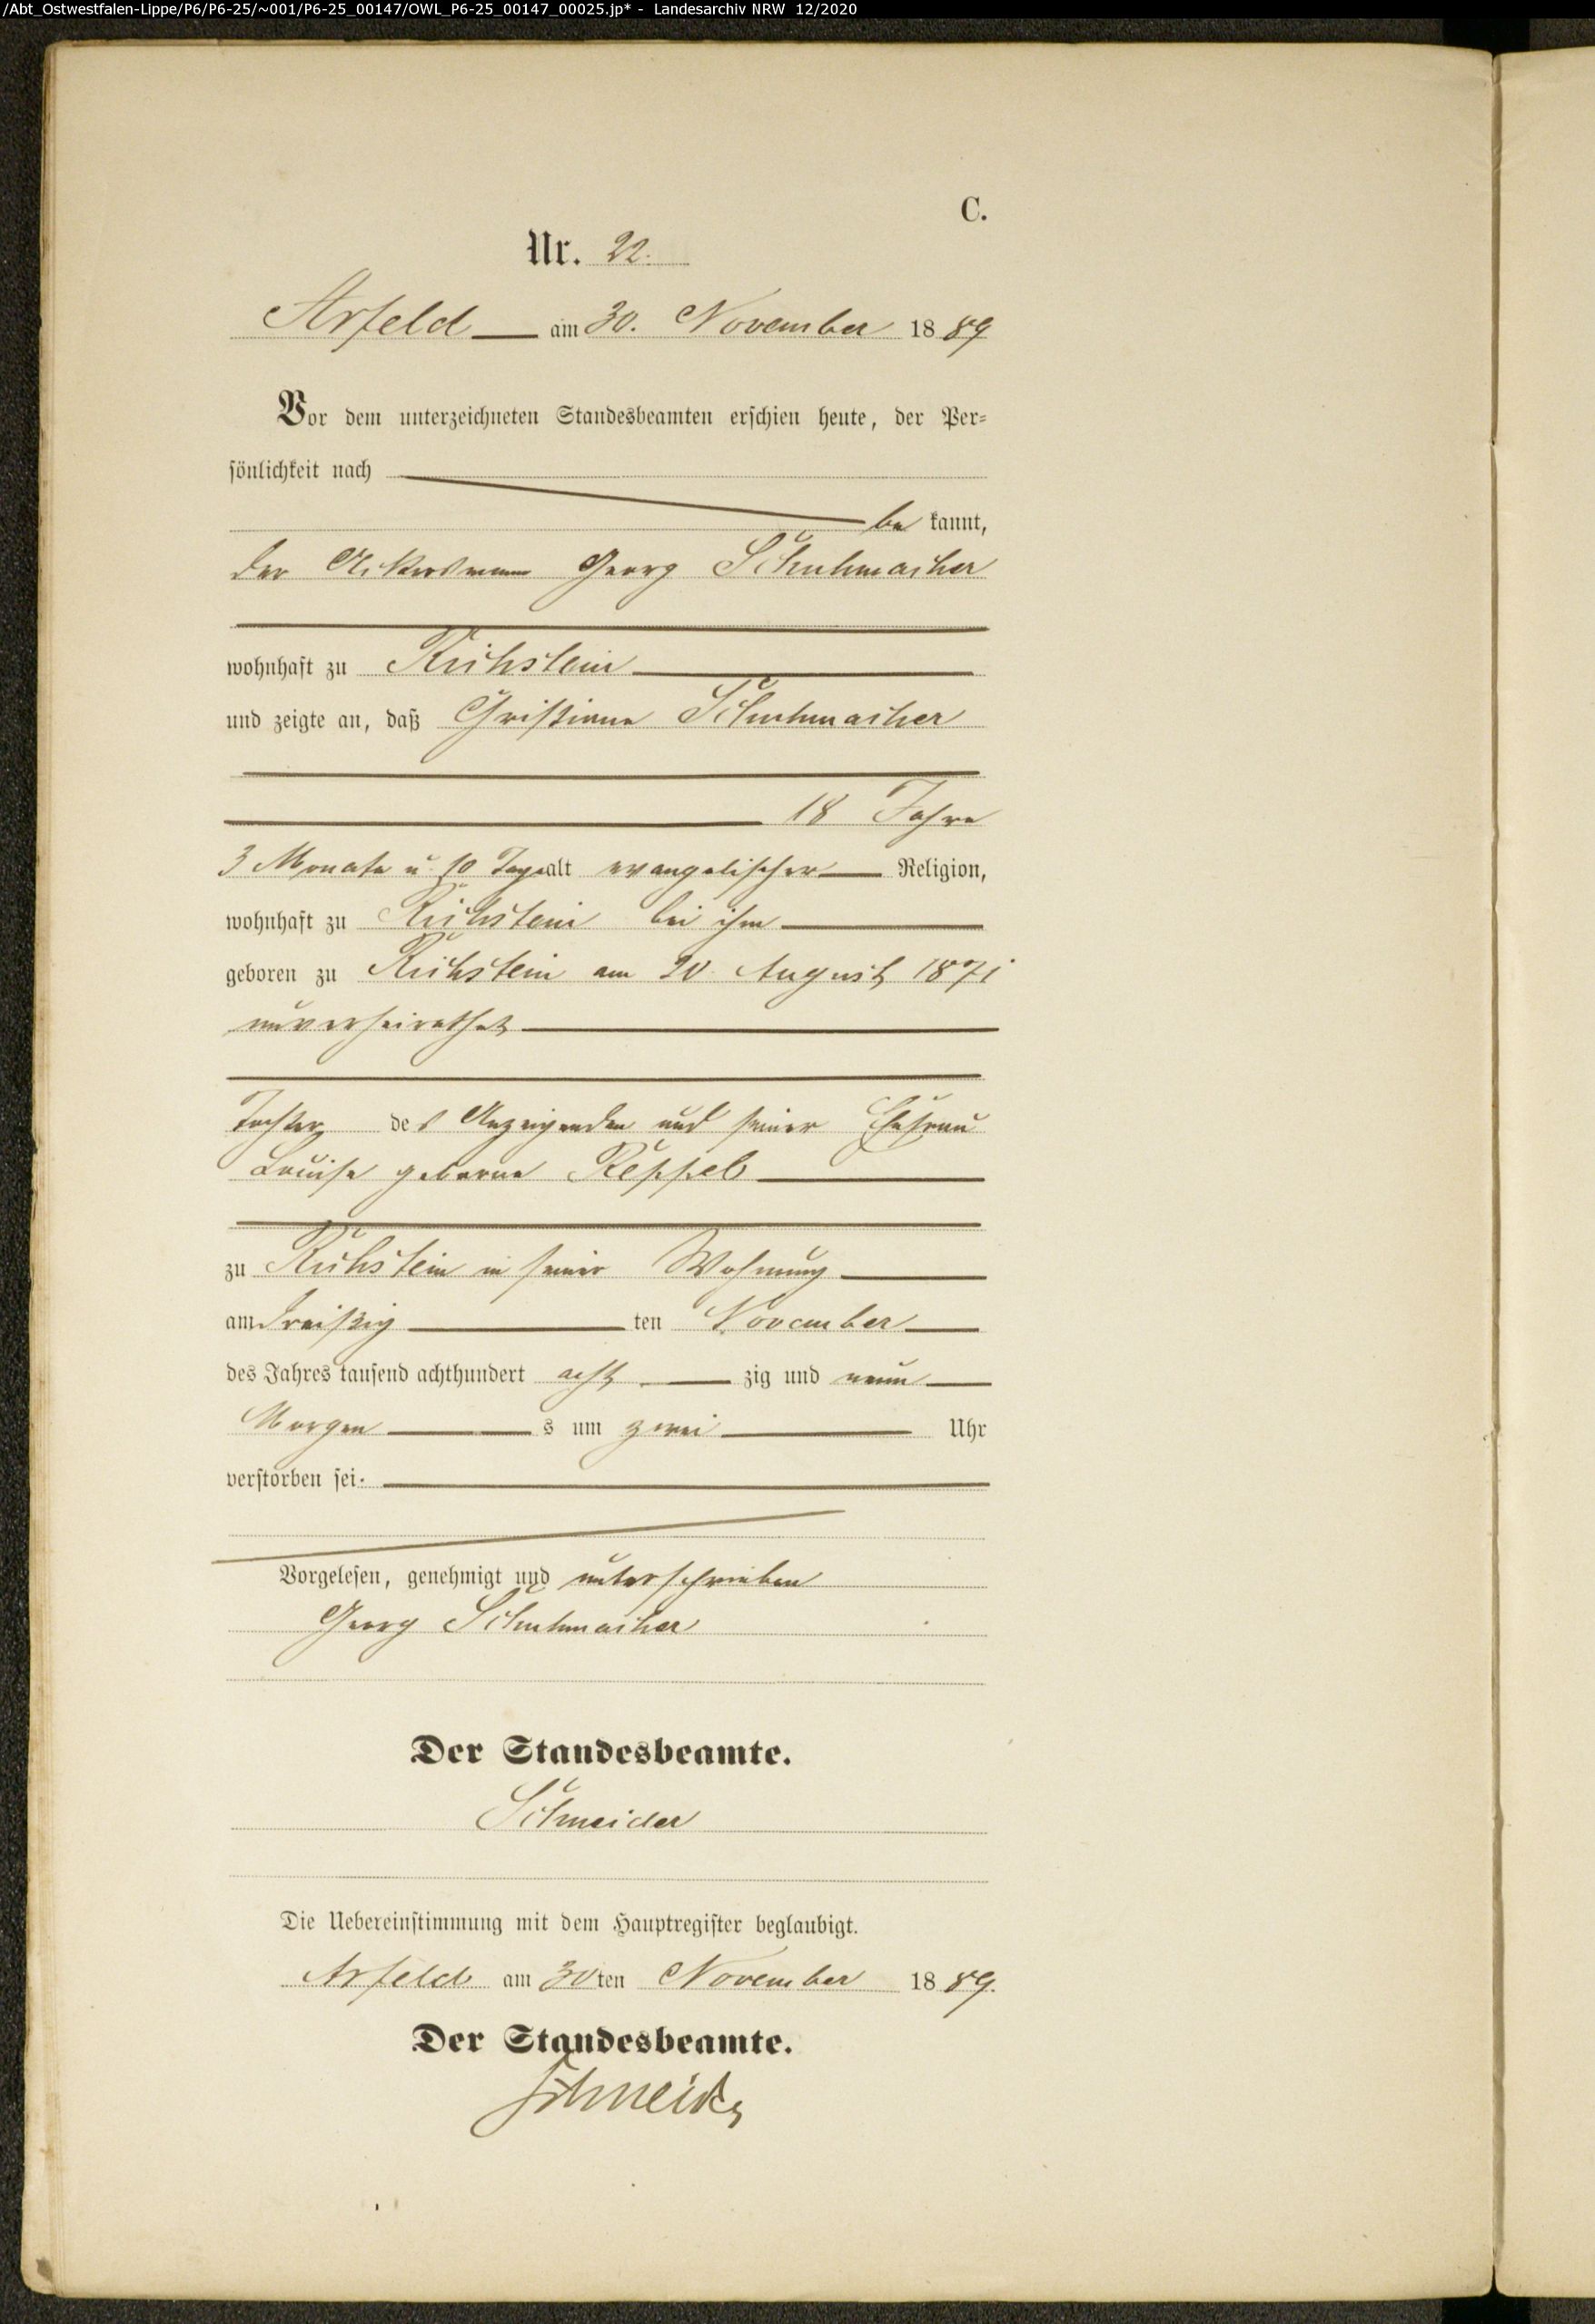 /Abt_Ostwestfalen-Lippe/P6/P6-25/~001/P6-25_00147/OWL_P6-25_00147_00025.jp* - Landesarchiv NRW 12/2020
C.
Nr. 22.
Arfeld am 30. November 1889
Vor dem unterzeichneten Standesbeamten erschien heute, der Per=
sönlichkeit nach
be kannt,
der Ackersmann Georg Schuhmacher
wohnhaft zu Richstein
und zeigte an, daß Christiane Schuhmacher
18 Jahre
3 Monate u 10 Tage alt evangelischer Religion,
wohnhaft zu Richstein bei ihm
geboren zu Richstein am 20 August 1871
unverheirathet
Tochter des Anzeigenden und seiner Ehefrau
Louise geborne Reppel
zu Richstein in seiner Wohnung
am dreißig ten November
des Jahres tausend achthundert acht zig und neun
Morgen s um zwei Uhr
verstorben sei.
Vorgelesen, genehmigt und unterschrieben
Georg Schuhmacher
Der Standesbeamte.
Schneider
Die Uebereinstimmung mit dem Hauptregister beglaubigt.
Arfeld am 30ten November 1889.
Der Standesbeamte.
Schneider